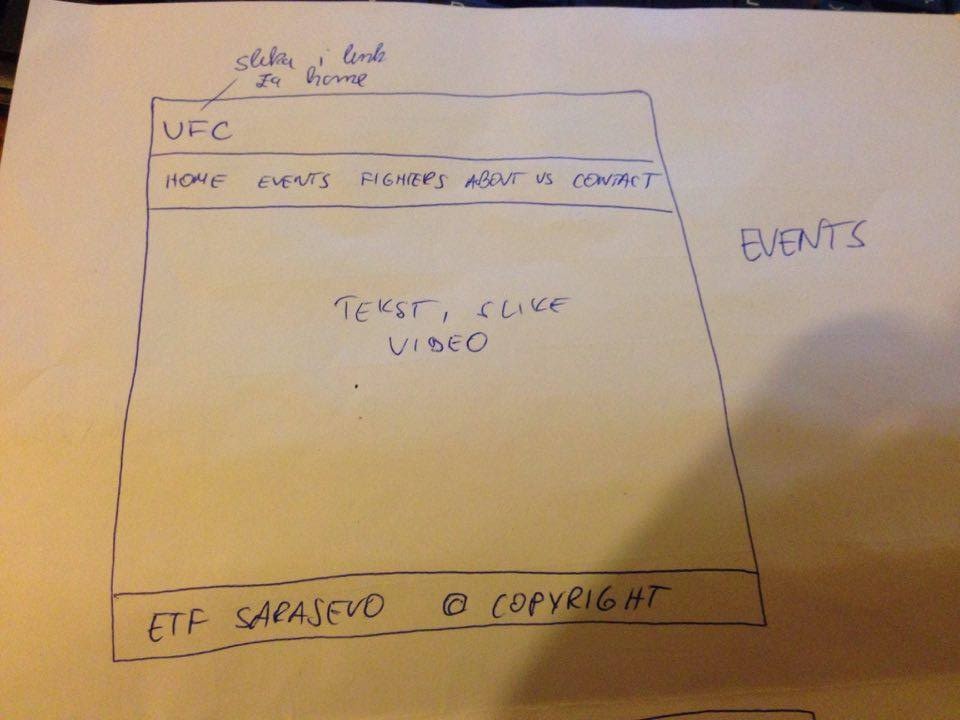 slika i link
za home
UFC
HOME EVENTS FIGHTERS ABOUT US CONTACT
EVENTS
TEKST, SLIKE
VIDEO
ETF SARAJEVO © COPYRIGHT